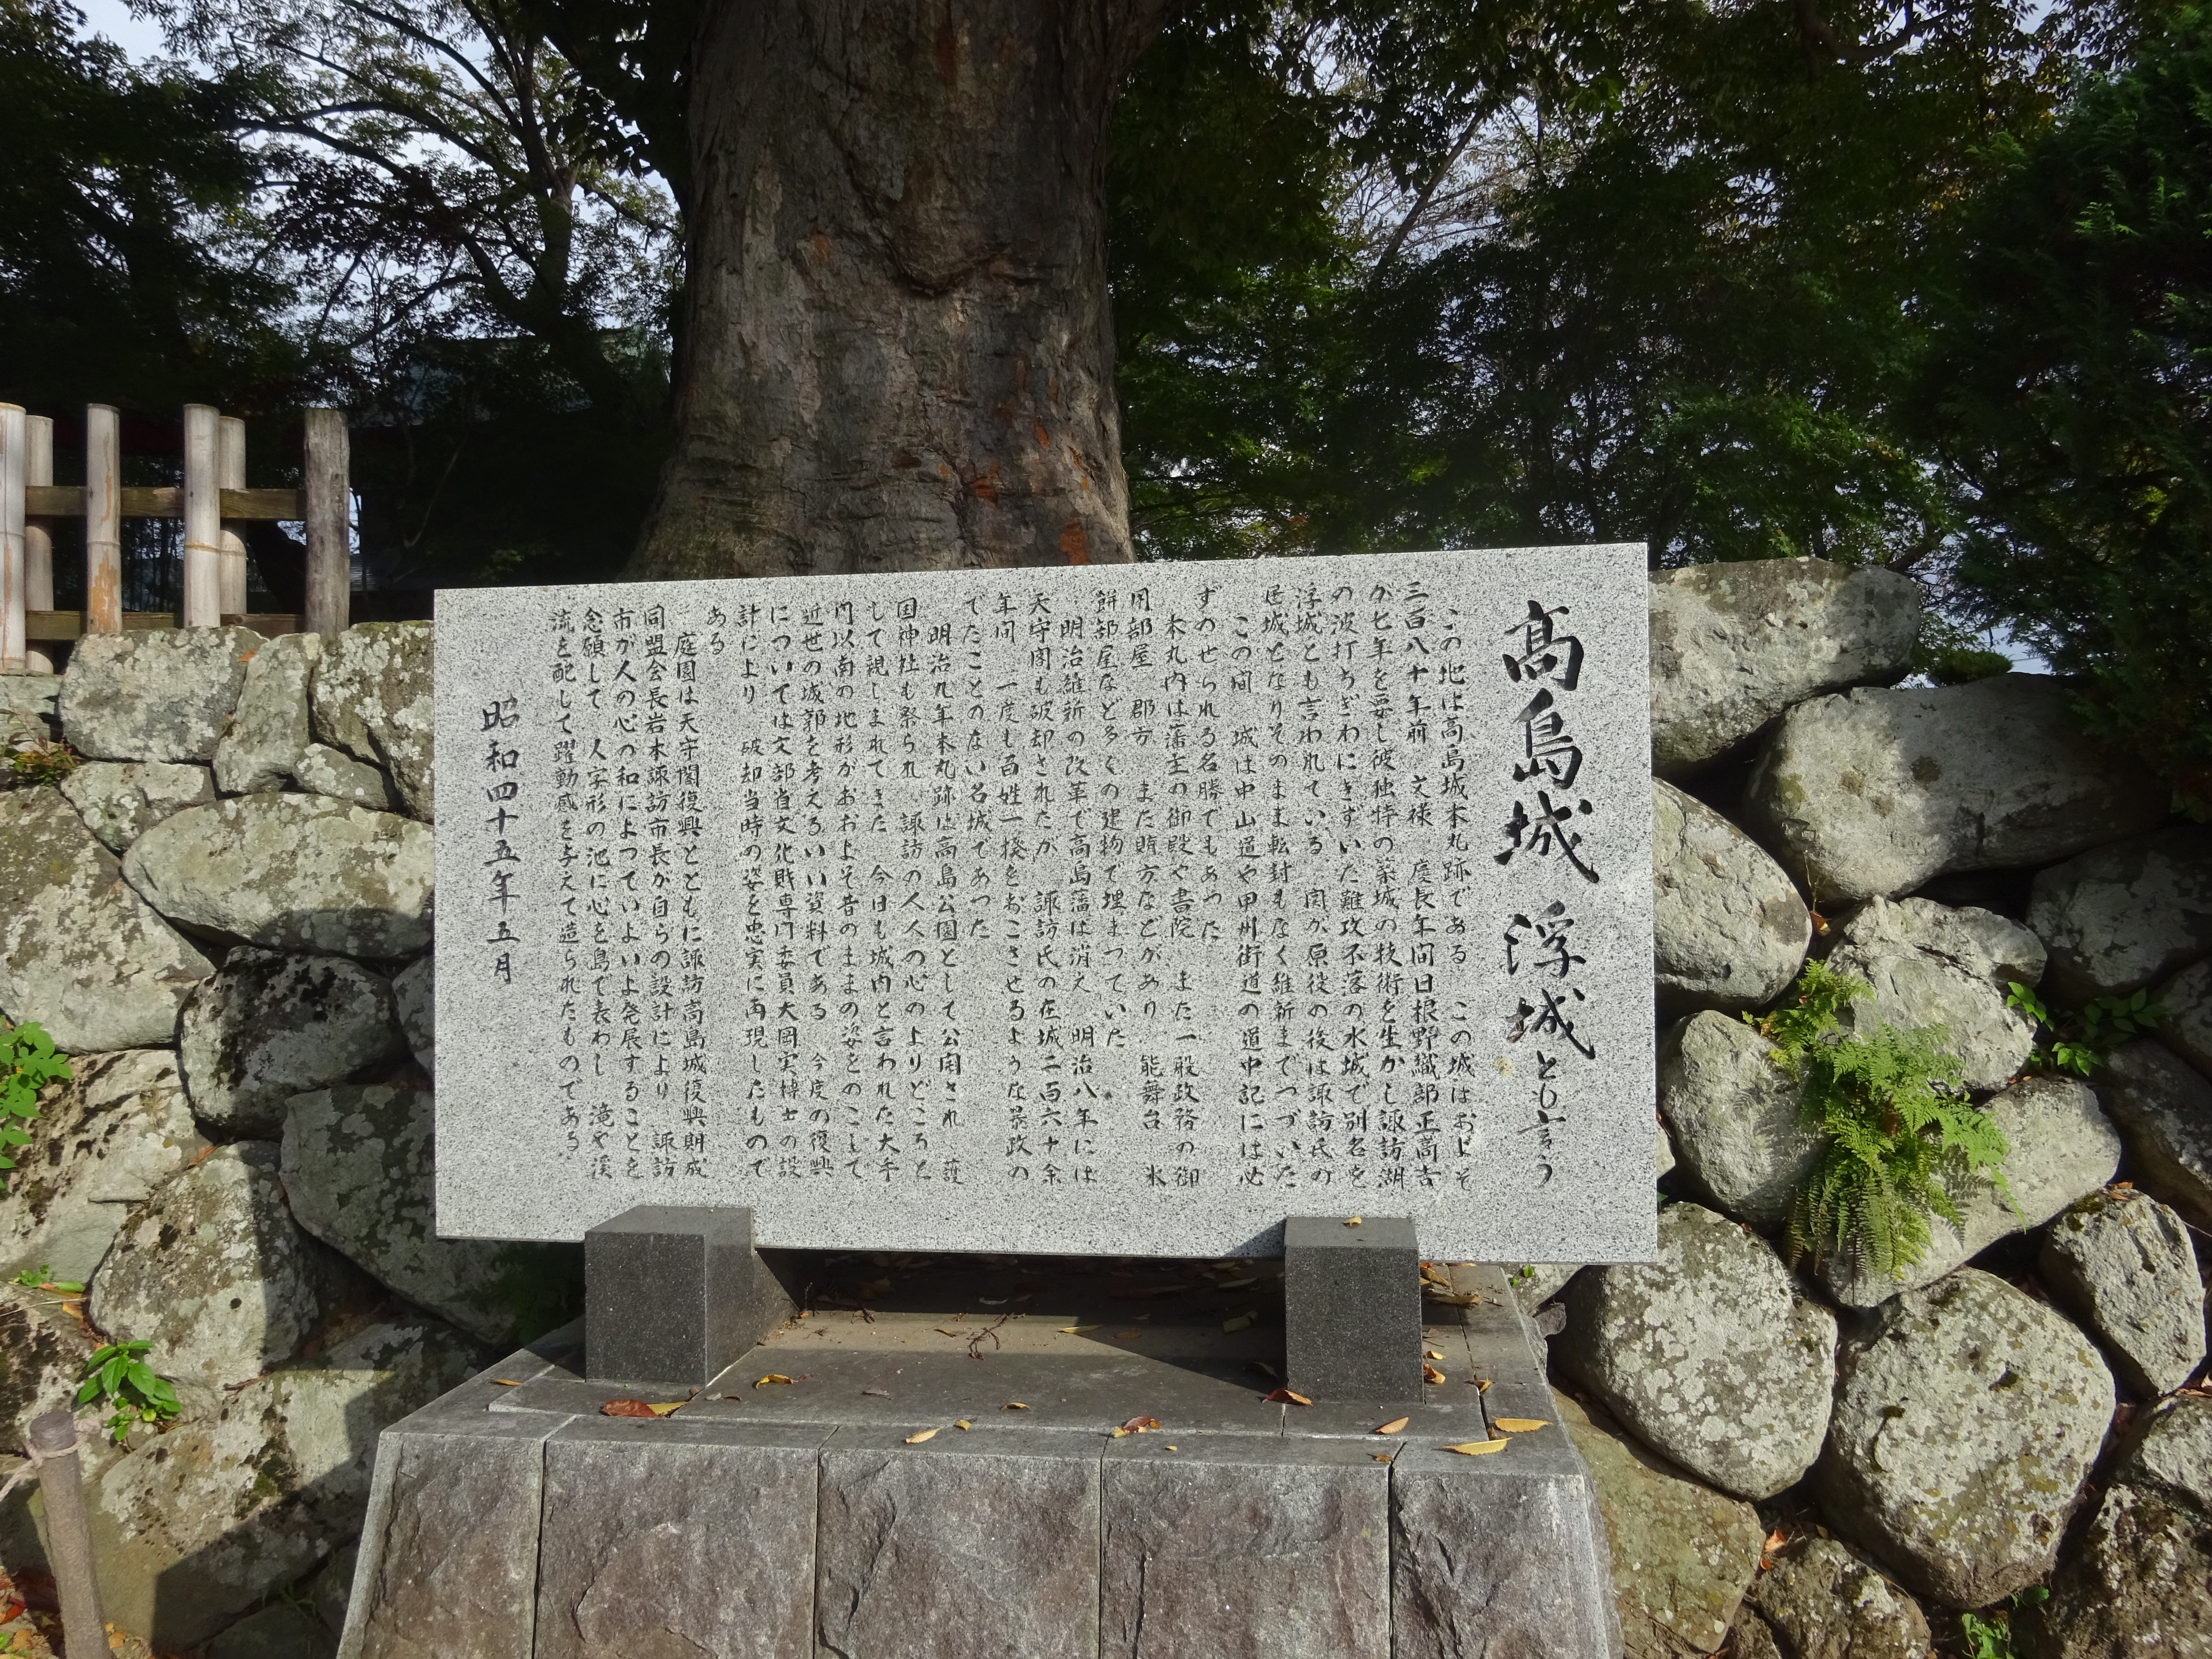 高島城 浮城とも言う
この地は高島城本丸跡である この城はおよそ
三百八十年前 文禄 慶長年間日根野織部正高吉
が七年を要し彼独特の築城の技術を生かし諏訪湖
の波打ちぎわにきずいた難攻不落の水城で別名を
浮城とも言われている 関が原役の後は諏訪氏の
居城となりそのまま転封もなく維新までつづいた
この間 城は中山道や甲州街道の道中記には必
ずのせられる名勝でもあった
本丸内は藩主の御殿や書院 また一般政務の御
用部屋 郡方 また賄方などがあり 能舞台 氷
餅部屋など多くの建物で埋まっていた
明治維新の改革で高島藩は消え 明治八年には
天守閣も破却されたが 諏訪氏の在城二百六十余
年間 一度も百姓一揆をおこさせるような暴政の
でたことのない名城であった
明治九年本丸跡は高島公園として公開され 護
国神社も祭られ 諏訪の人人の心のよりどころと
して親しまれてきた 今日も城内と言われた大手
門以南の地形がおおよそ昔のままの姿をのこして
近世の城郭を考えるいい資料である 今度の復興
については文部省文化財専門委員大岡実博士の設
計により 破却当時の姿を忠実に再現したもので
ある
庭園は天守閣復興とともに諏訪高島城復興期成
同盟会長岩本諏訪市長が自らの設計により 諏訪
市が人の心の和によっていよいよ発展することを
念願して 人字形の池に心を島で表わし 滝や渓
流を配して躍動感を与えて造られたものである
昭和四十五年五月